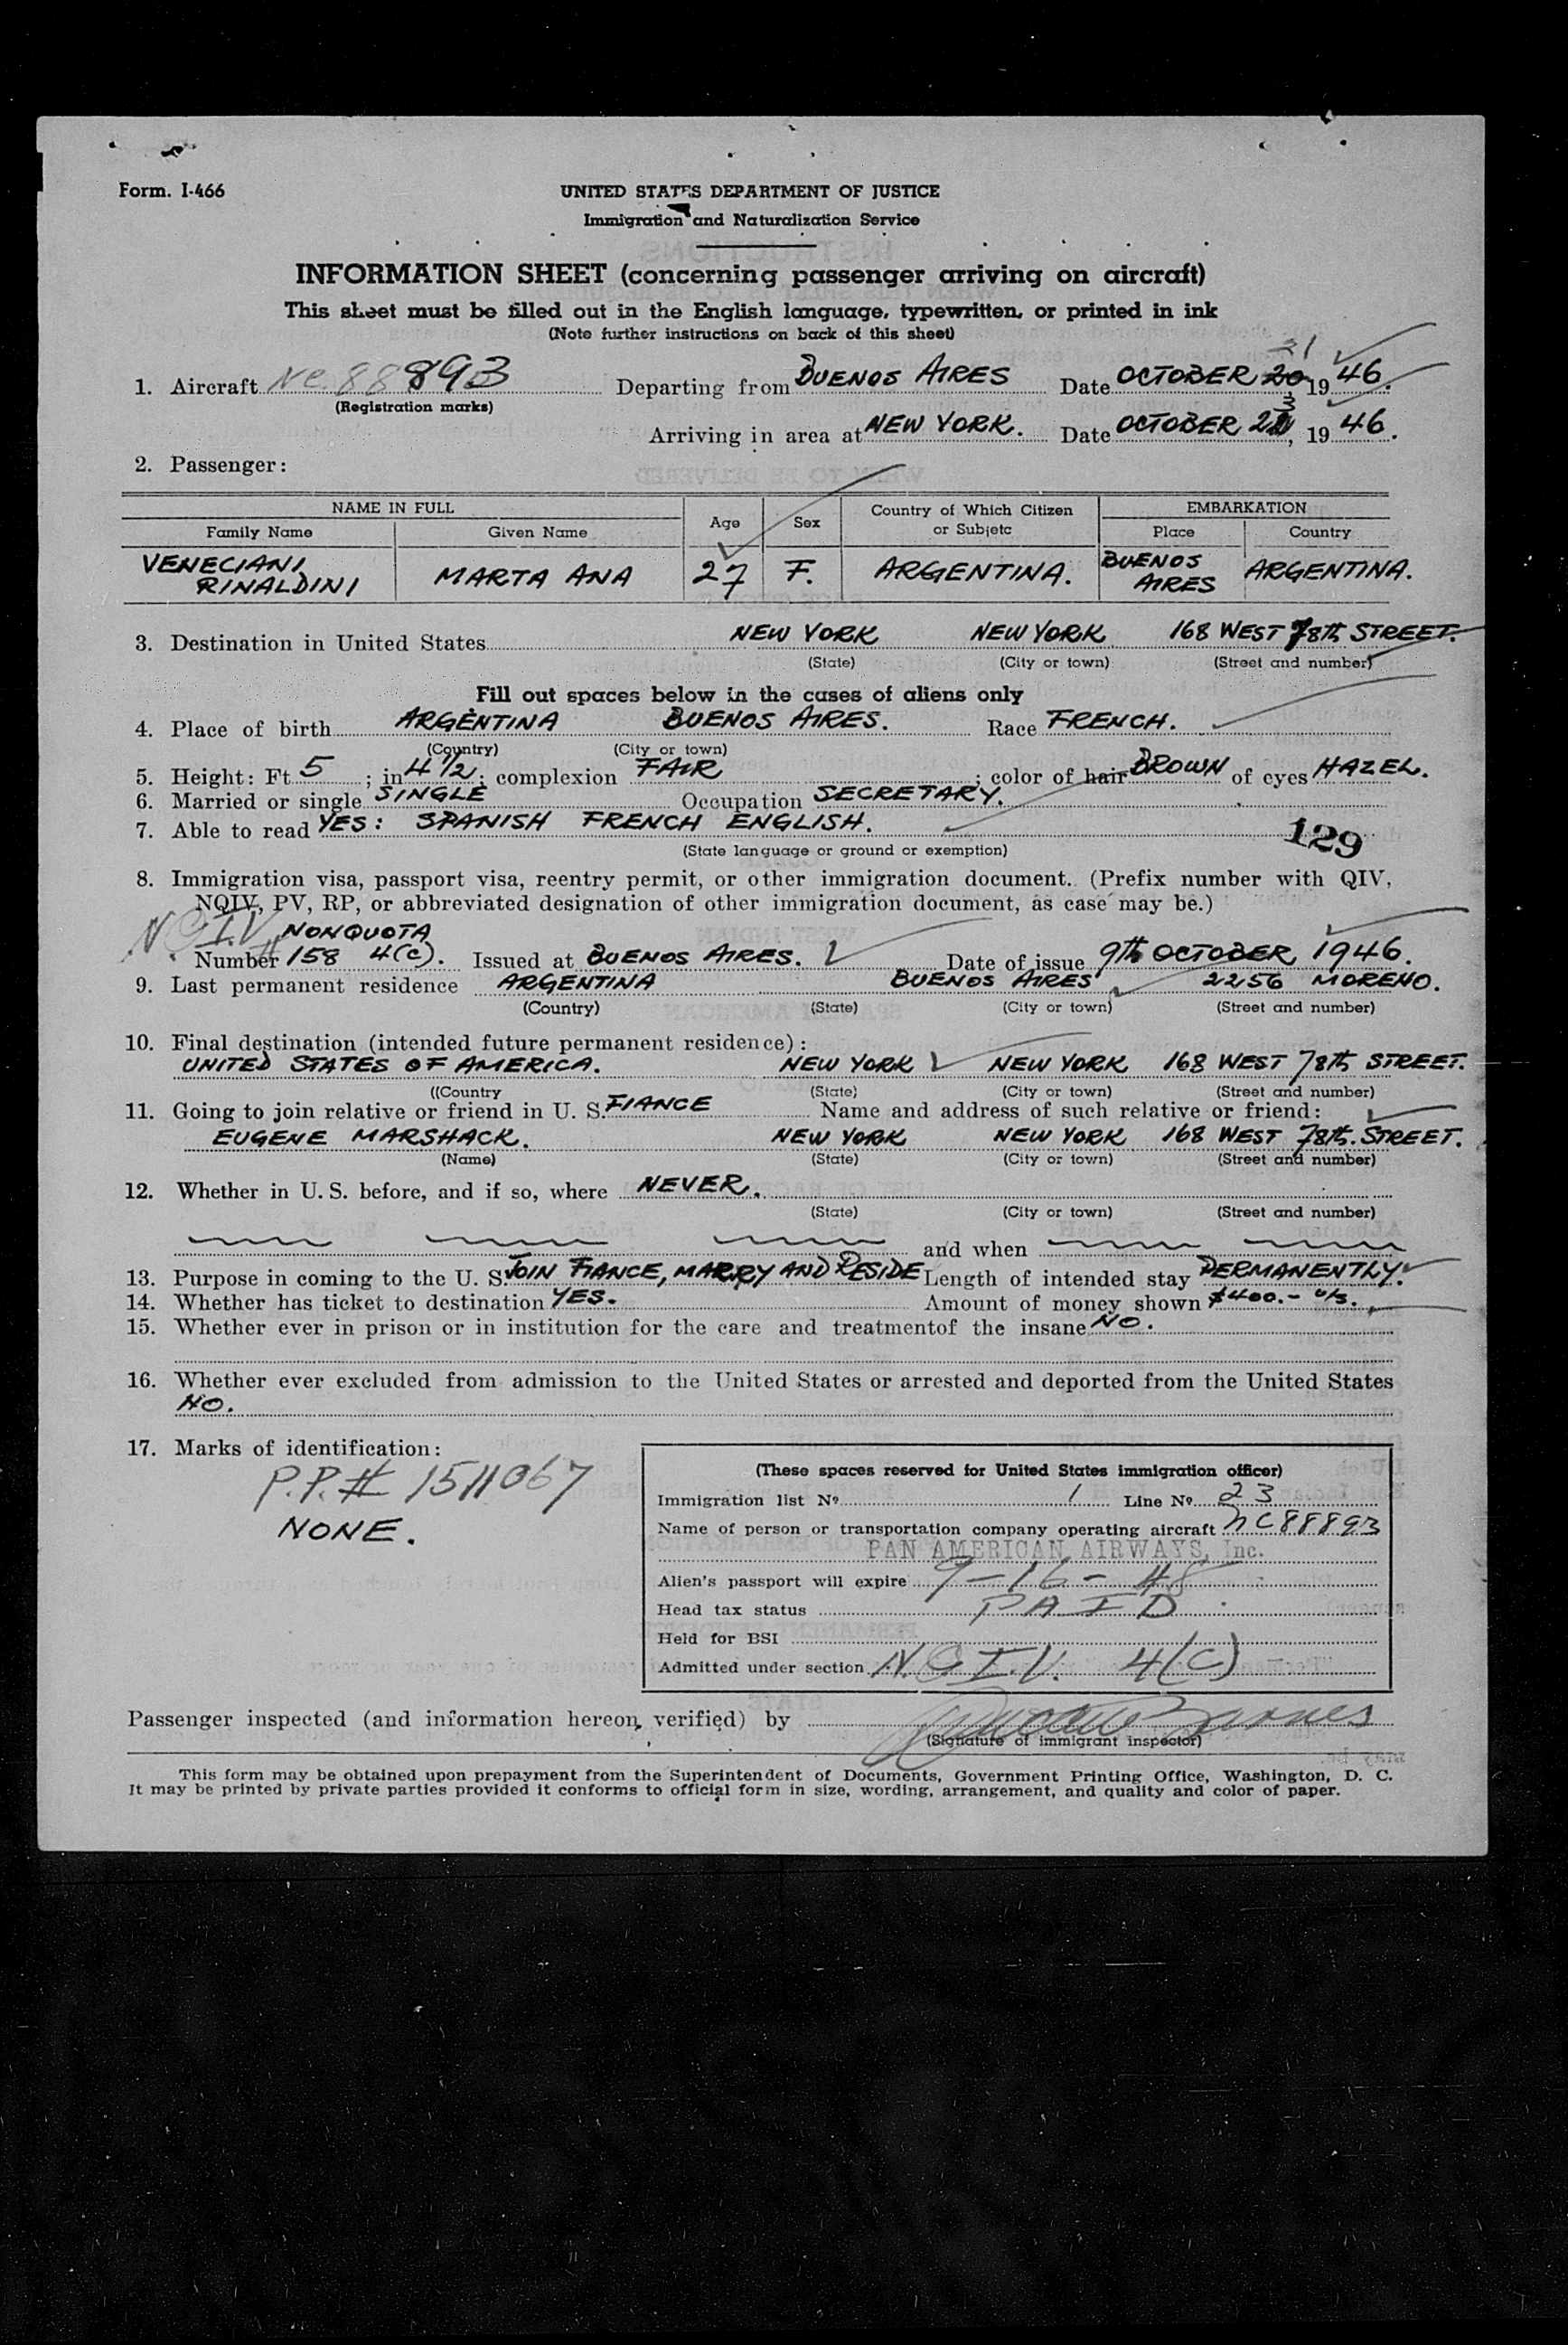 Form. I-466
UNITED STATES DEPARTMENT OF JUSTICE
Immigration and Naturalization Service
INFORMATION SHEET (concerning passenger arriving on aircraft)
This sheet must be filled out in the English language, typewritten, or printed in ink
(Note further instructions on back of this sheet)
21
1. Aircraft NC. 88893 Departing from BUENOS AIRES Date OCTOBER 20, 19 46.
(Registration marks)
3
Arriving in area at NEW YORK. Date OCTOBER 21, 19 46.
2. Passenger:
NAME IN FULL Age Sex Country of Which Citizen or Subjetc EMBARKATION
Family Name Given Name Place Country
VENECIANI RINALDINI MARTA ANA 27 F. ARGENTINA. BUENOS AIRES ARGENTINA.
3. Destination in United States NEW YORK NEW YORK 168 WEST 78th STREET.
(State) (City or town) (Street and number)
Fill out spaces below in the cases of aliens only
4. Place of birth ARGENTINA BUENOS AIRES. Race FRENCH.
(Country) (City or town)
5. Height: Ft 5 ; in 4 1/2 ; complexion FAIR ; color of hair BROWN of eyes HAZEL.
6. Married or single SINGLE Occupation SECRETARY.
7. Able to read YES: SPANISH FRENCH ENGLISH.
(State language or ground or exemption)
129
8. Immigration visa, passport visa, reentry permit, or other immigration document. (Prefix number with QIV,
NQIV, PV, RP, or abbreviated designation of other immigration document, as case may be.)
N.Q.I.V. NONQUOTA
Number # 158 4(c). Issued at BUENOS AIRES. Date of issue 9th OCTOBER 1946.
9. Last permanent residence ARGENTINA BUENOS AIRES 2256 MORENO.
(Country) (State) (City or town) (Street and number)
10. Final destination (intended future permanent residence):
UNITED STATES OF AMERICA. NEW YORK NEW YORK 168 WEST 78th STREET.
((Country (State) (City or town) (Street and number)
11. Going to join relative or friend in U. S. FIANCE Name and address of such relative or friend:
EUGENE MARSHACK. NEW YORK NEW YORK 168 WEST 78th. STREET.
(Name) (State) (City or town) (Street and number)
12. Whether in U. S. before, and if so, where NEVER.
(State) (City or town) (Street and number)
and when
13. Purpose in coming to the U. S. JOIN FIANCE, MARRY AND RESIDE Length of intended stay PERMANENTLY.
14. Whether has ticket to destination YES. Amount of money shown $400.- u/s.
15. Whether ever in prison or in institution for the care and treatmentof the insane NO.
16. Whether ever excluded from admission to the United States or arrested and deported from the United States
NO.
17. Marks of identification:
P.P.# 1511067
NONE.
(These spaces reserved for United States immigration officer)
Immigration list Nº 1 Line Nº 23
Name of person or transportation company operating aircraft NC88893
PAN AMERICAN AIRWAYS, Inc.
Alien's passport will expire 9-16-48
Head tax status PAID
Held for BSI
Admitted under section N.Q.I.V. 4(C)
Passenger inspected (and information hereon, verified) by Barnes
(Signature of immigrant inspector)
This form may be obtained upon prepayment from the Superintendent of Documents, Government Printing Office, Washington, D. C.
It may be printed by private parties provided it conforms to official form in size, wording, arrangement, and quality and color of paper.